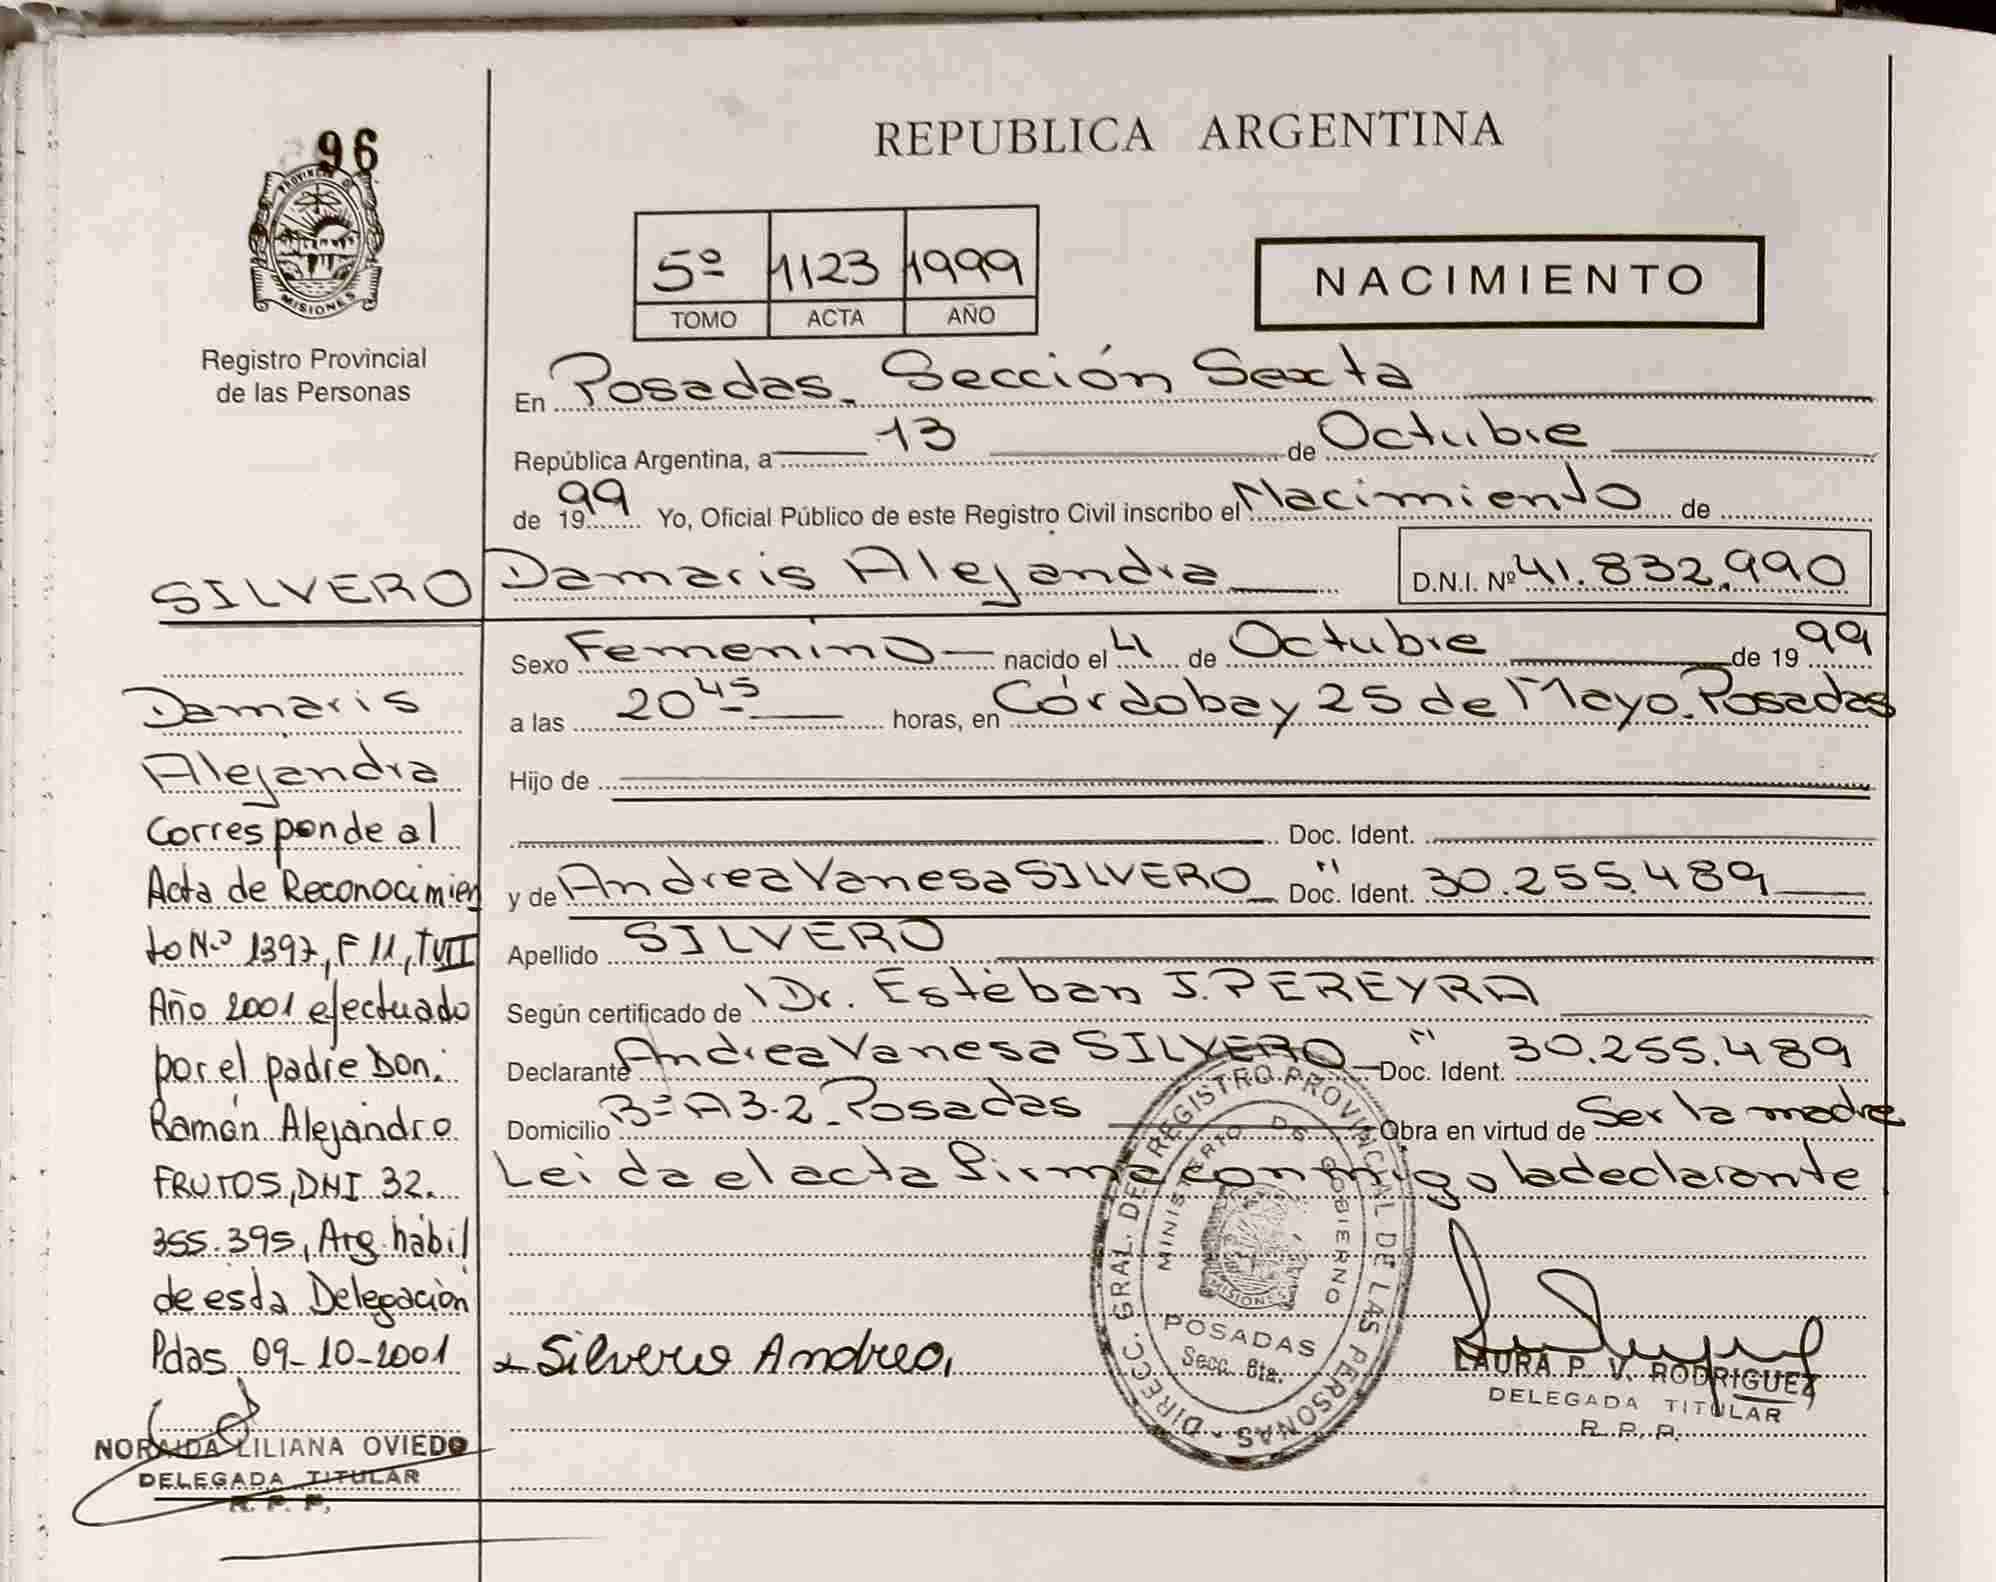 96
PROVINCIA D
MISIONES
Registro Provincial
de las Personas
REPUBLICA ARGENTINA
5º 1123 1999
TOMO ACTA AÑO
NACIMIENTO
En Posadas. Sección Sexta
República Argentina, a 13 de Octubre
de 1999 Yo, Oficial Público de este Registro Civil inscribo el Nacimiento de
SILVERO Damaris Alejandra D.N.I. Nº 41.832.990
Sexo Femenino nacido el 4 de Octubre de 1999
a las 20 45 horas, en Córdoba y 25 de Mayo. Posadas
Hijo de
Doc. Ident.
y de Andrea Vanesa SILVERO Doc. Ident. " 30.255.489
Apellido SILVERO
Según certificado de Dr. Estéban J. PEREYRA
Declarante Andrea Vanesa SILVERO Doc. Ident. " 30.255.489
Domicilio Bº A3-2. Posadas Obra en virtud de Ser la madre
Leida el acta firma conmigo la declarante
Silvero Andrea,
LAURA P. V. RODRIGUEZ
DELEGADA TITULAR
R. P. P.
DIRECC. GRAL. DEL REGISTRO PROVINCIAL DE LAS PERSONAS
MINISTERIO DE GOBIERNO
MISIONES
POSADAS
Secc. 6ta.
Damaris
Alejandra
Corresponde al
Acta de Reconocimien
to Nº 1397, F 11, TVII
Año 2001 efectuado
por el padre Don:
Ramón Alejandro
FRUTOS, DNI 32.
355.395, Arg. hábil
de esta Delegación
Pdas 09-10-2001
NORAIDA LILIANA OVIEDO
DELEGADA TITULAR
R. P. P.